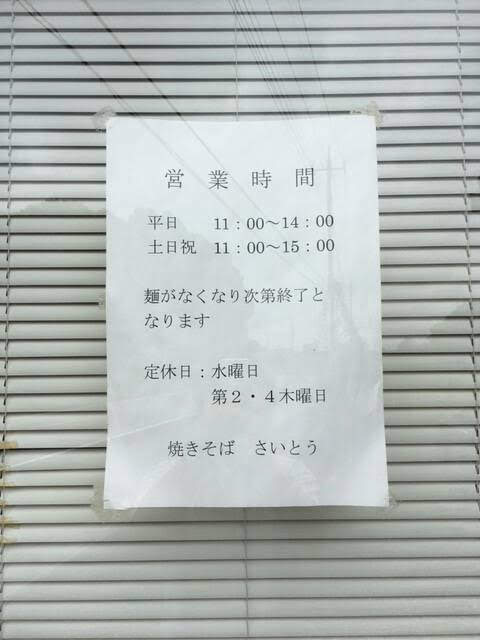 営業時間
平日　11：00～14：00
土日祝　11：00～15：00
麺がなくなり次第終了と
なります
定休日：水曜日
第２・４木曜日
焼きそば　さいとう